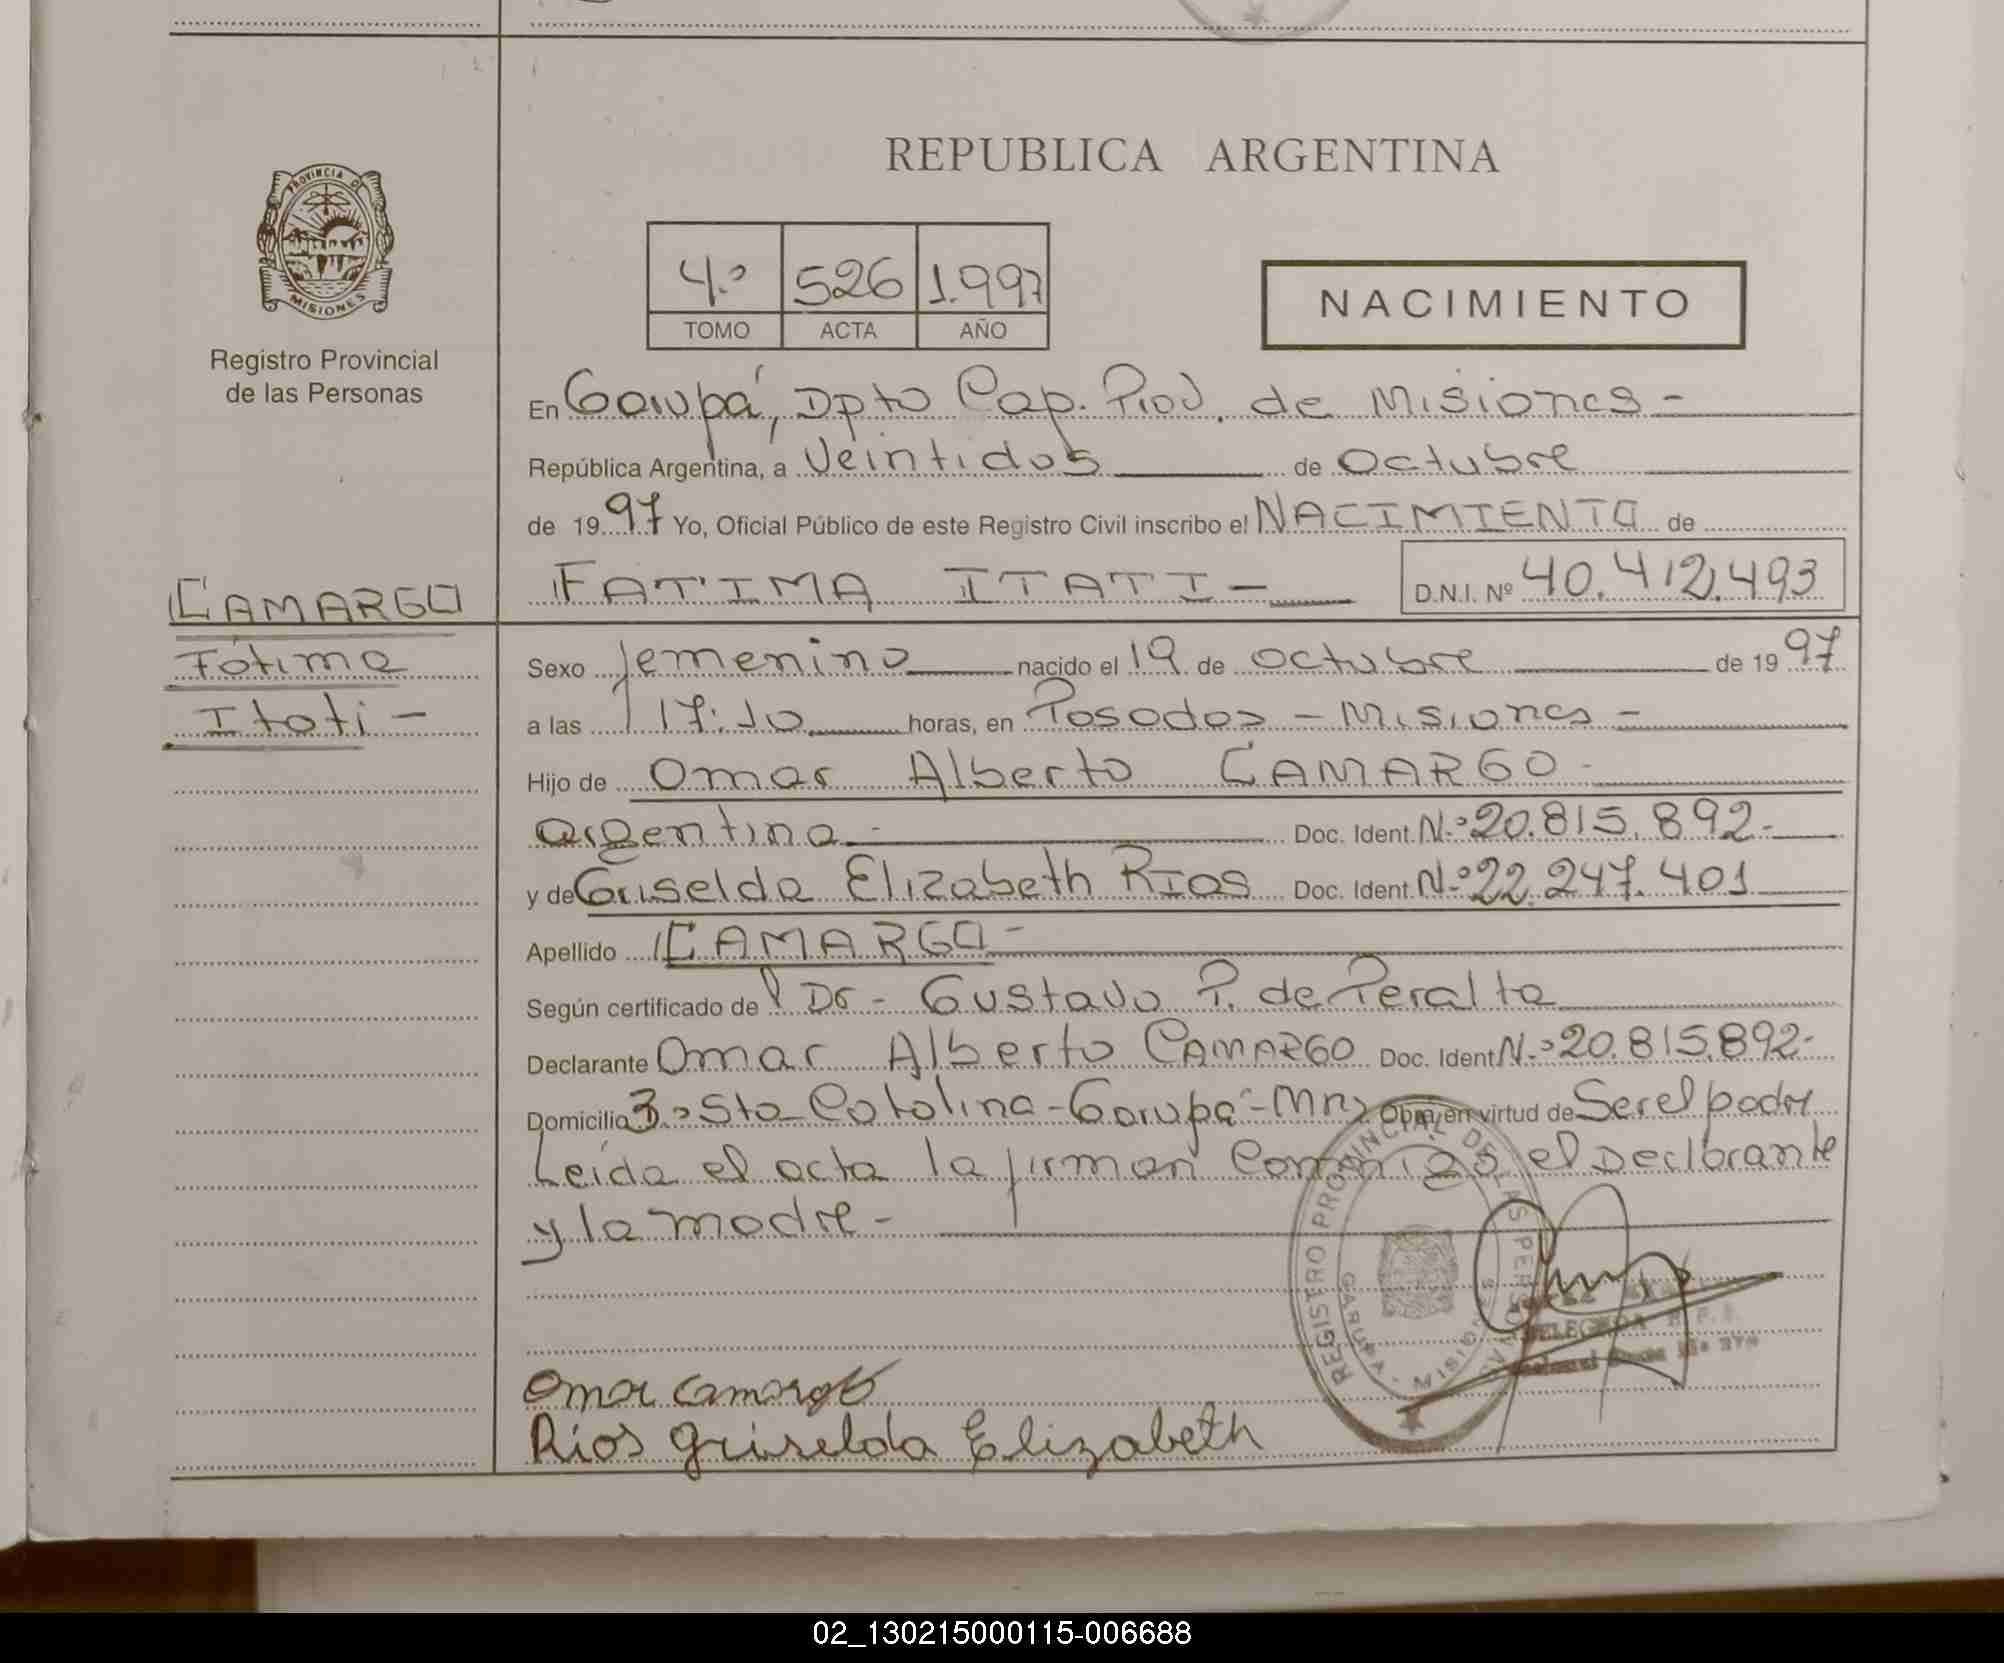 PROVINCIA DE
MISIONES
Registro Provincial
de las Personas
REPUBLICA ARGENTINA
4.º 526 1.997
TOMO ACTA AÑO
NACIMIENTO
En Garupá, Dpto Cap. Prov. de Misiones -
República Argentina, a Veintidos de Octubre
de 19 97 Yo, Oficial Público de este Registro Civil inscribo el NACIMIENTO de
FATIMA ITATI - D.N.I. Nº 40.412.493
CAMARGO
Fátima
Itati -
Sexo femenino nacido el 19 de octubre de 19 97
a las 17:10 horas, en Posadas - Misiones -
Hijo de Omar Alberto CAMARGO -
argentina - Doc. Ident. N.º 20.815.892-
y de Griselda Elizabeth RIOS Doc. Ident. N.º 22.247.401
Apellido CAMARGO -
Según certificado de Dr - Gustavo P. de Peralta
Declarante Omar Alberto CAMARGO Doc. Ident N.º 20.815.892-
Domicilio Bº Sta Catalina - Garupá - Mnes Obra en virtud de Ser el padre
Leída el acta la firman conmigo el Declarante
y la madre -
REGISTRO PROVINCIAL DE LAS PERSONAS
GARUPA - MISIONES
DELEGADA R.P.
Omar Camargo
Rios Griselda Elizabeth
02_130215000115-006688